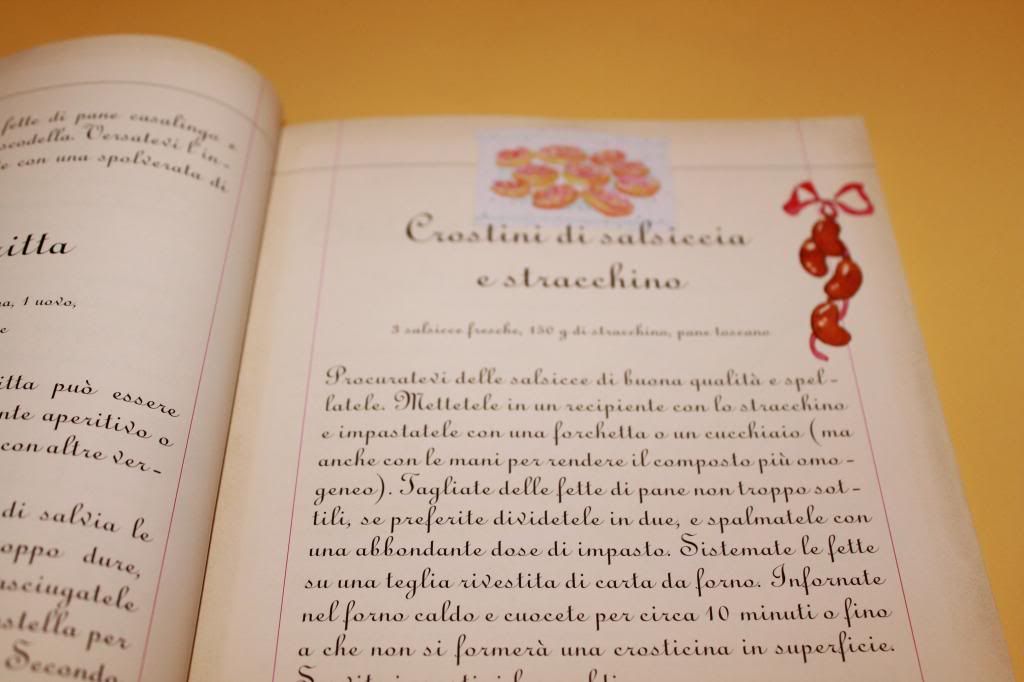 fette di pane casalingo e
scodella. Versatevi l'in-
e con una spolverata di
itta
1 uovo,
e
itta può essere
nte aperitivo o
con altre ver-
di salvia le
oppo dure,
asciugatele
stella per
Secondo
Crostini di salsiccia
e stracchino
3 salsicce fresche, 150 g di stracchino, pane toscano
Procuratevi delle salsicce di buona qualità e spel-
latele. Mettetele in un recipiente con lo stracchino
e impastatele con una forchetta o un cucchiaio (ma
anche con le mani per rendere il composto più omo-
geneo). Tagliate delle fette di pane non troppo sot-
tili, se preferite dividetele in due, e spalmatele con
una abbondante dose di impasto. Sistemate le fette
su una teglia rivestita di carta da forno. Infornate
nel forno caldo e cuocete per circa 10 minuti o fino
a che non si formerà una crosticina in superficie.